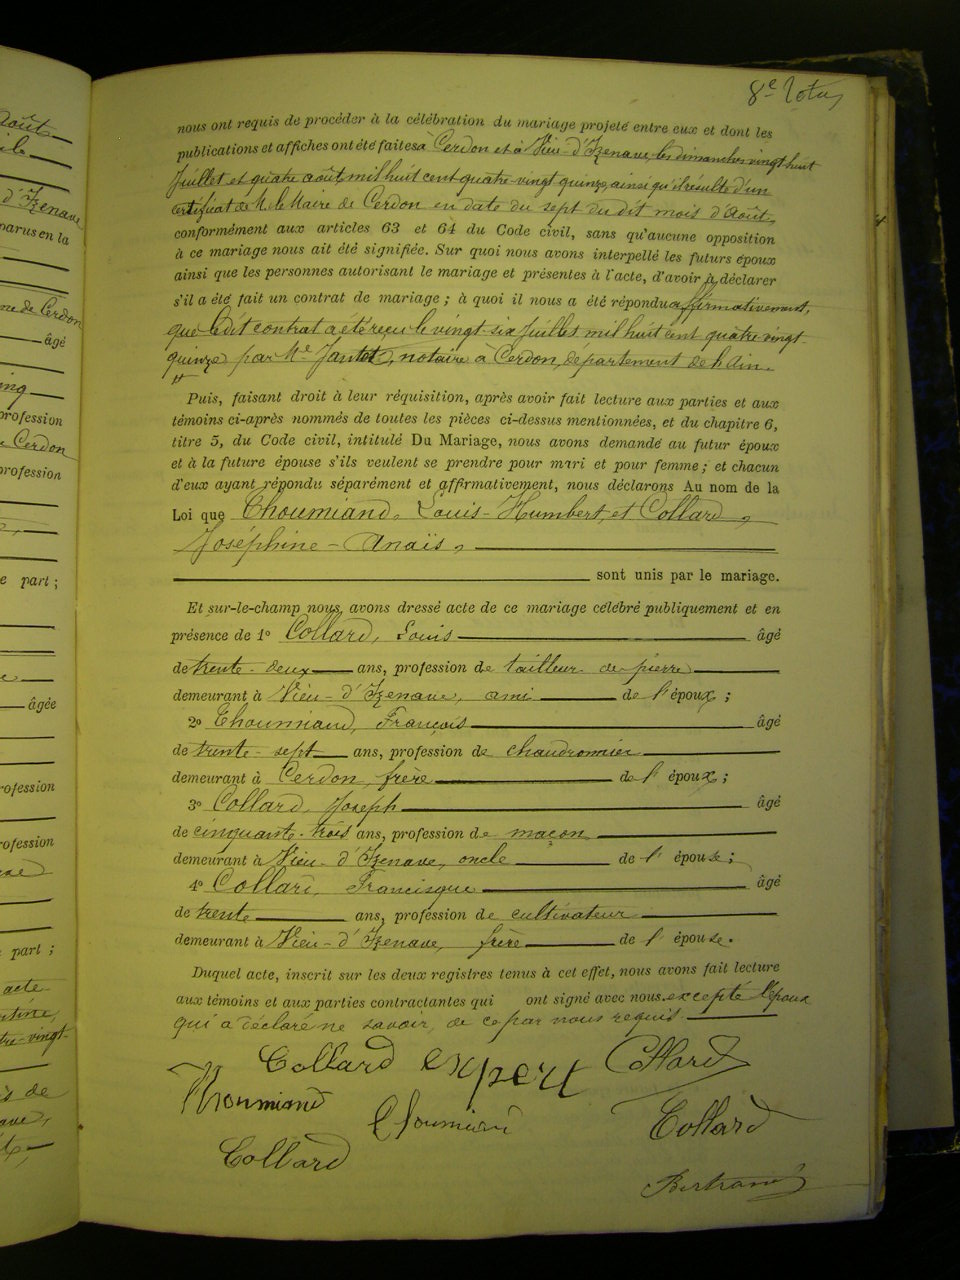 8e
nous ont requis de procéder à la célébration du mariage projeté entre eux et dont les
publications et affiches ont été faites à Cerdon et à Vieu-d'Izenave, les dimanches vingt huit
Juillet et quatre août mil huit cent quatre-vingt quinze, ainsi qu'il résulte d'un
certificat de M. le Maire de Cerdon en date du sept du dit mois d'Août,
conformément aux articles 63 et 64 du Code civil, sans qu'aucune opposition
à ce mariage nous ait été signifiée. Sur quoi nous avons interpellé les futurs époux
ainsi que les personnes autorisant le mariage et présentes à l'acte, d'avoir à déclarer
s'il a été fait un contrat de mariage ; à quoi il nous a été répondu affirmativement,
que le dit contrat a été reçu le vingt-six Juillet mil huit cent quatre-vingt-
quinze par Me Jantet, notaire à Cerdon, département de l'Ain.
Puis, faisant droit à leur réquisition, après avoir fait lecture aux parties et aux
témoins ci-après nommés de toutes les pièces ci-dessus mentionnées, et du chapitre 6,
titre 5, du Code civil, intitulé Du Mariage, nous avons demandé au futur époux
et à la future épouse s'ils veulent se prendre pour mari et pour femme ; et chacun
d'eux ayant répondu séparément et affirmativement, nous déclarons Au nom de la
Loi que Thoumiand, Louis-Humbert, et Collard,
Joséphine-Anaïs,
sont unis par le mariage.
Et sur-le-champ nous avons dressé acte de ce mariage célébré publiquement et en
présence de 1° Collard, Louis âgé
de trente-deux ans, profession de tailleur de pierre
demeurant à Vieu-d'Izenave, ami de l'époux ;
2° Thoumiand, François âgé
de trente-sept ans, profession de chaudronnier
demeurant à Cerdon, frère de l'époux ;
3° Collard, Joseph âgé
de cinquante-trois ans, profession de maçon
demeurant à Vieu-d'Izenave, oncle de l'épouse ;
4° Collard, Francisque âgé
de trente ans, profession de cultivateur
demeurant à Vieu-d'Izenave, frère de l'épouse.
Duquel acte, inscrit sur les deux registres tenus à cet effet, nous avons fait lecture
aux témoins et aux parties contractantes qui ont signé avec nous excepté l'époux
qui a déclaré ne savoir, de ce par nous requis.
Collard expert Collard
Thoumiand
Thoumiand Collard
Collard
Bertrand
août
d'Izenave
parus en la
de Cerdon
âgé
profession
Cerdon
profession
e part ;
âgée
profession
profession
part ;
acte
vingt-
de